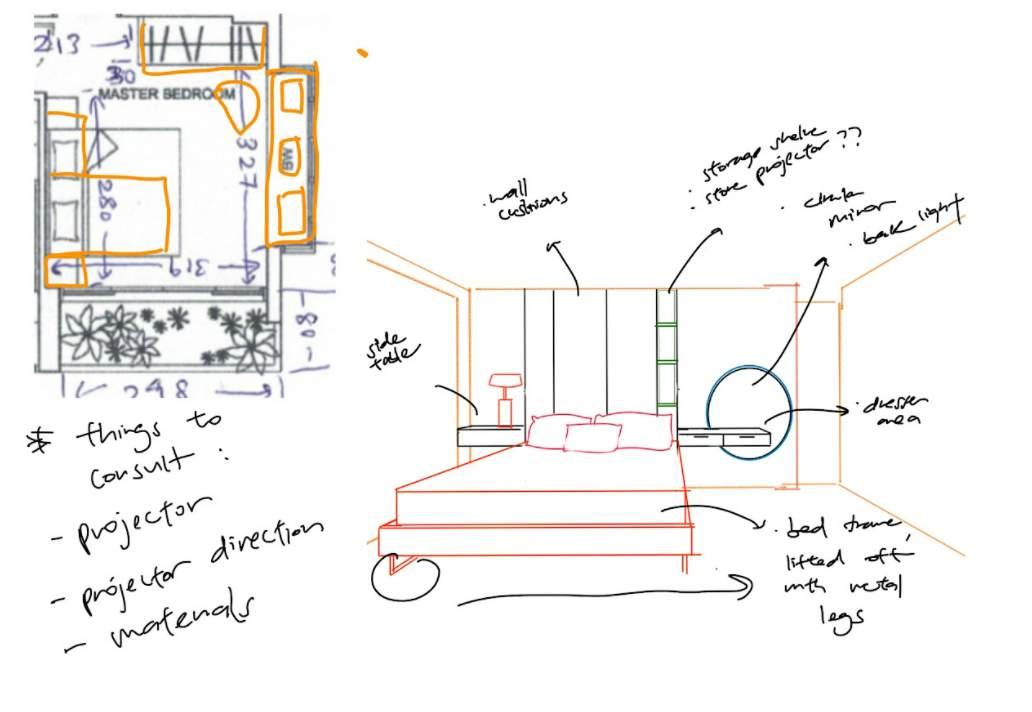 213
30
MASTER BEDROOM
327
280
319
80
298
* things to
consult :
- projector
- projector direction
- materials
. wall
cushions
. storage shelve
. store projector ??
.
mirror
. back light
side
table
. dresser
area
. bed frame
lifted off
with metal
legs